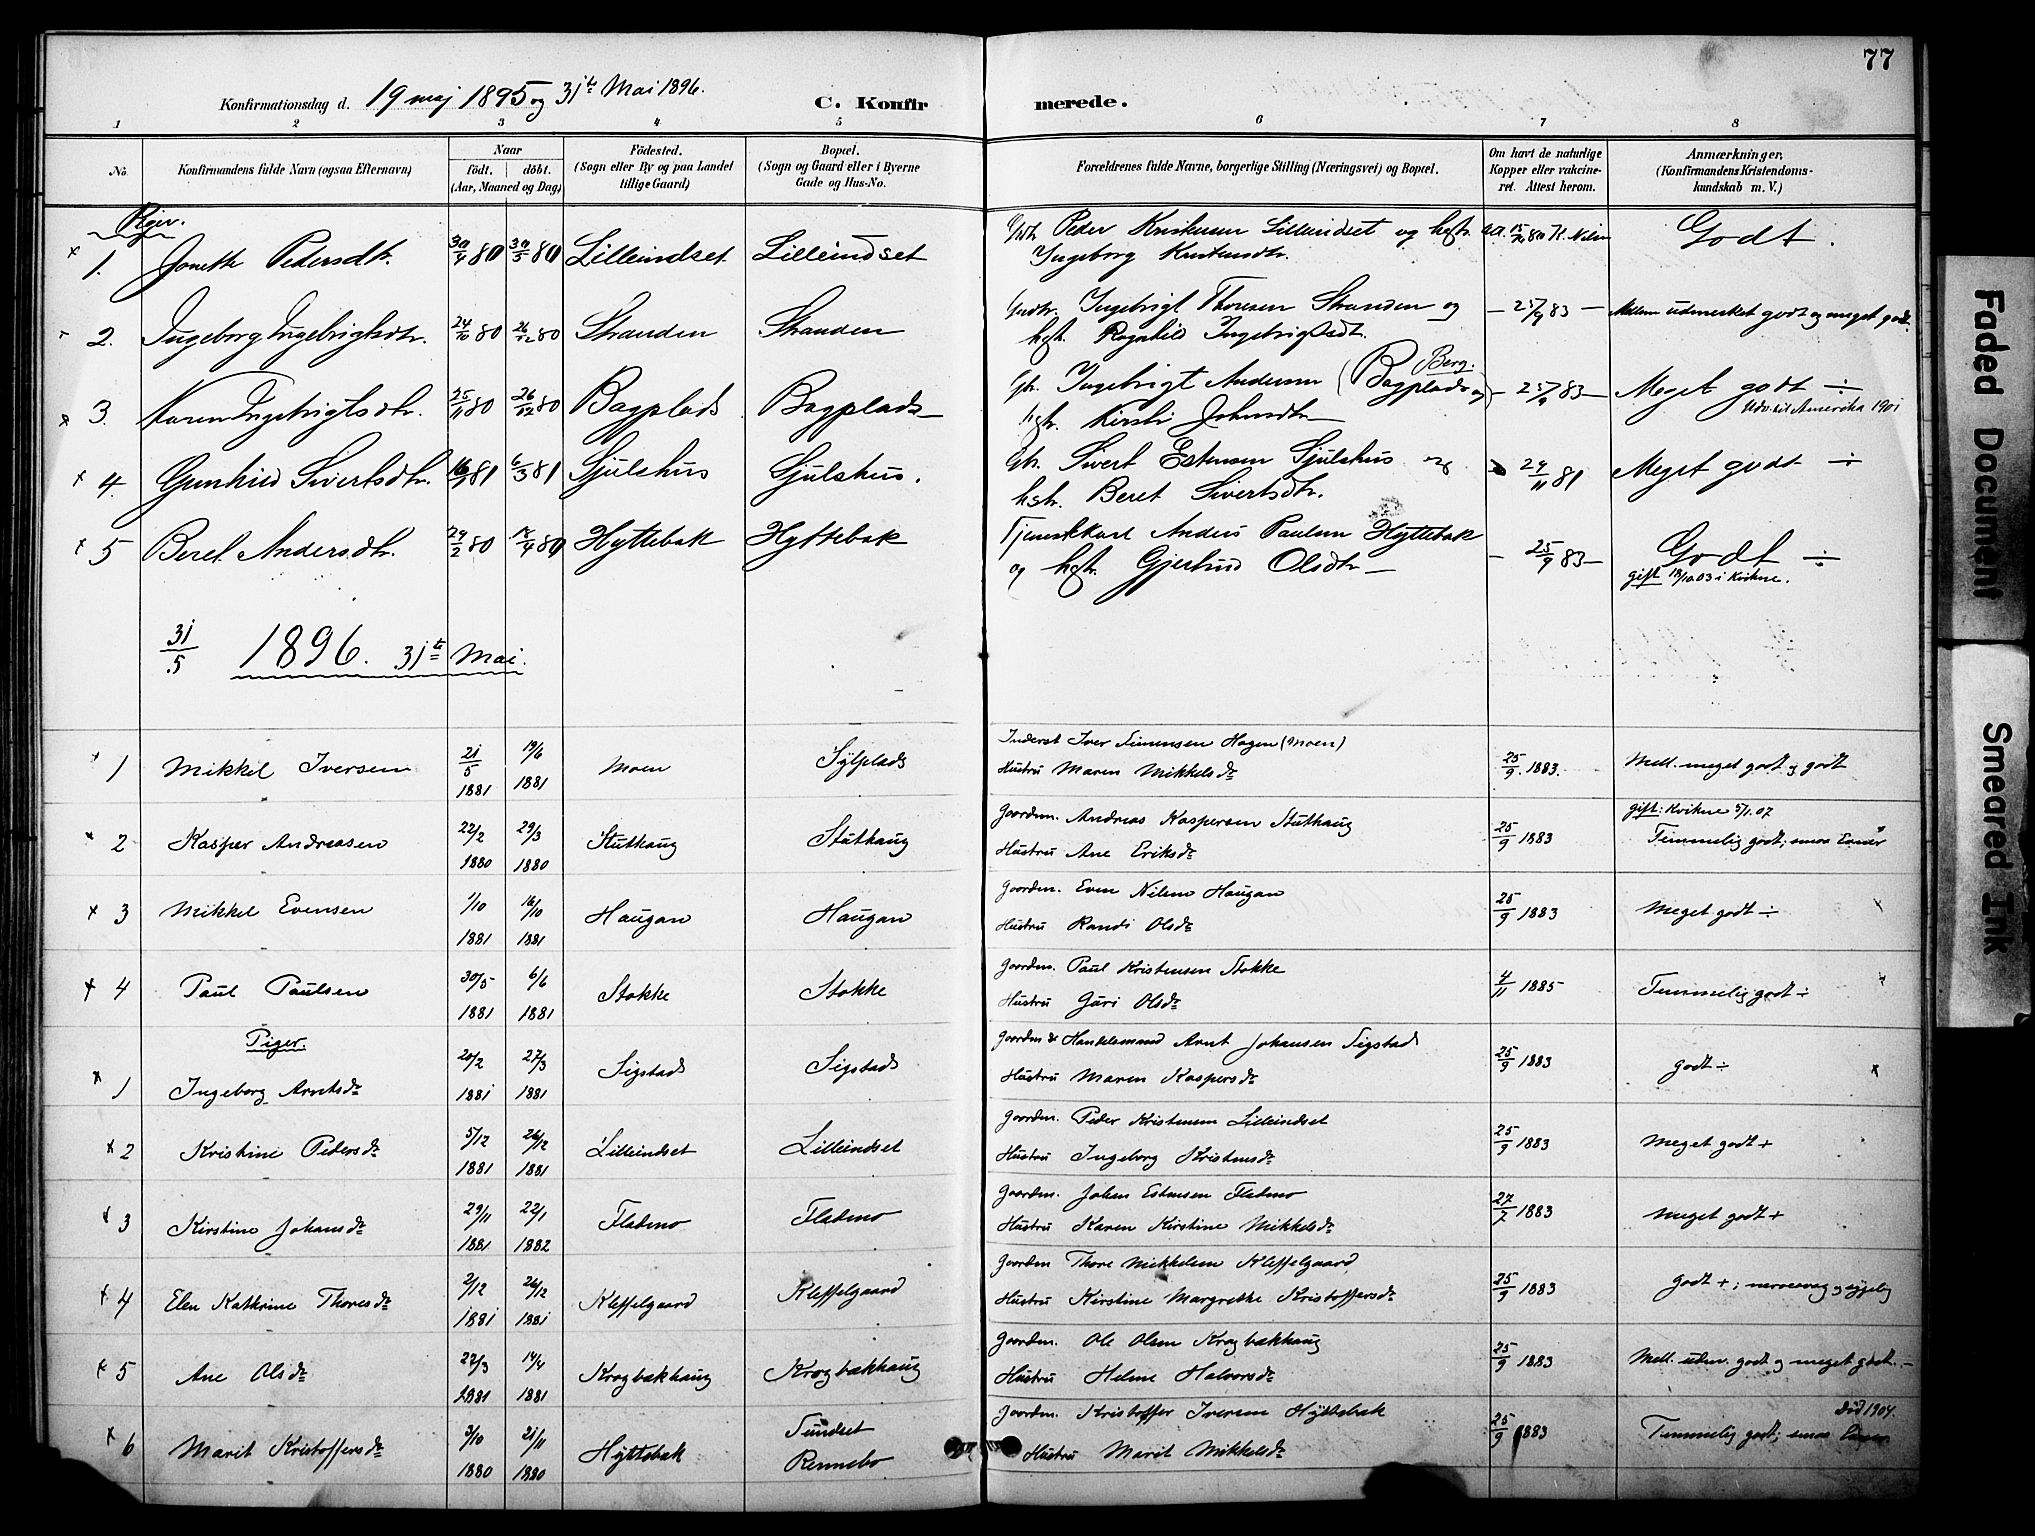 77
Konfirmationsdag d. 19 maj 1895 og 31te Mai 1896.
C. Konfirmerede.
1 2 3 4 5 6 7 8
No. Konfirmandens fulde Navn (ogsaa Efternavn) Naar födt. döbt. (Aar, Maaned og Dag) Födested. (Sogn eller By og paa Landet tillige Gaard) Bopæl. (Sogn og Gaard eller i Byerne Gade og Hus-No. Forældrenes fulde Navne, borgerlige Stilling (Næringsvei) og Bopæl. Om havt de naturlige Kopper eller vakcineret. Attest herom. Anmærkninger, (Konfirmandens Kristendomskundskab m. V.)
Piger.
1. Jonette Pedersdtr. 30/4 80 30/5 80 Lilleindset Lilleindset Peder Kristensen Lilleindset og hstr. Godt.
Ingeborg Kristensdtr.
2. Ingeborg Ingebrigtsdtr. 24/10 80 26/12 80 Stranden Stranden Ingebrigt Thoresen Stranden og — 25/9 83 — Mellem udmerket godt og meget godt.
hstr. Ragnhild Ingebrigtsdt.
Berg.
3. Karen Ingebrigtsdtr. 25/11 80 26/12 80 Bagplads Bagplads Gbr. Ingebrigt Andersen (Bagplads og — 25/9 83 — Meget godt ÷
hstr. Kirsti Johnsdtr — Udv. til Amerika 1901
4. Gunhild Sivertsdtr. 16/1 81 6/3 81 Sjulshus Sjulshus. Gbr. Sivert Estensen Sjulshus og 29/11 81 Meget godt ÷
hstr. Beret Sivertsdtr.
5 Beret Andersdtr. 29/2 80 18/4 80 Hyttebak Hyttebak Tjenestkarl Anders Paulsen Hyttebak — 25/9 83 — Godt ÷
og hstr. Gjertrud Olsdtr — gift 18/10 03 i Kvikne.
31/5 1896. 31te Mai.
1 Mikkel Iversen 21/5 1881 19/6 1881 Moen Sylplads Inderst Iver Simensen Hagen (Moen) 25/9 1883. Mell. meget godt og godt
Hustru Maren Mikkelsdr
2 Kasper Andreasen 22/2 1880 29/3 1880 Stuthaug Stuthaug Gaardm. Andreas Kaspersen Stuthaug 25/9 1883 gift: Kvikne 5/1.07
Hustru Ane Eriksdr Temmelig godt; smaa Evner
3 Mikkel Evensen 1/10 1881 16/10 1881 Haugan Haugan Gaardm. Even Nilsen Haugan 25/9 1883 Meget godt ÷
Hustru Randi Olsdr
4 Paul Paulsen 30/5 1881 6/6 1881 Stokke Stokke Gaardm. Paul Kristensen Stokke 4/11 1885 Temmelig godt ÷
Hustru Guri Olsdr
Piger.
1 Ingeborg Arntsdr 20/2 1881 27/3 1881 Sigstad Sigstad Gaardm & Handelsmand Arnt Johansen Sigstad 25/9 1883 godt ÷
Hustru Maren Kaspersdr
2 Kristine Pedersdr 5/12 1881 26/12 1881 Lilleindset Lilleindset Gaardm. Peder Kristensen Lilleindset 25/9 1883 Meget godt +
Hustru Ingeborg Kristensdr
3 Kirstine Johansdr 29/11 1881 22/1 1882 Fladmo Fladmo Gaardm. Johan Estensen Fladmo 27/7 1883 Meget godt +
Hustru Karen Kirstine Mikkelsdr
4 Elen Kathrine Thoresdr 2/12 1881 26/12 1881 Kleffelgaard Kleffelgaard Gaardm Thore Mikkelsen Kleffelgaard 25/9 1883 godt +; nervesvag og sygelig
Hustru Kirstine Margrethe Kristoffersdr
5 Ane Olsdr 22/3 1881 14/4 1881 Krogbækhaug Krogbækhaug Gaardm. Ole Olsen Krogbækhaug 25/9 1883 Mell. udm. godt og meget godt. —
Hustru Helene Halvorsdr
6 Marit Kristoffersdr 3/10 1880 21/11 1880 Hyttebak Sundset Rennebo Gaardm. Kristoffer Iversen Hyttebak 25/9 1883 Död 1904.
Hustru Marit Mikkelsdr Temmelig godt; smaa
Faded Document
Smeared Ink